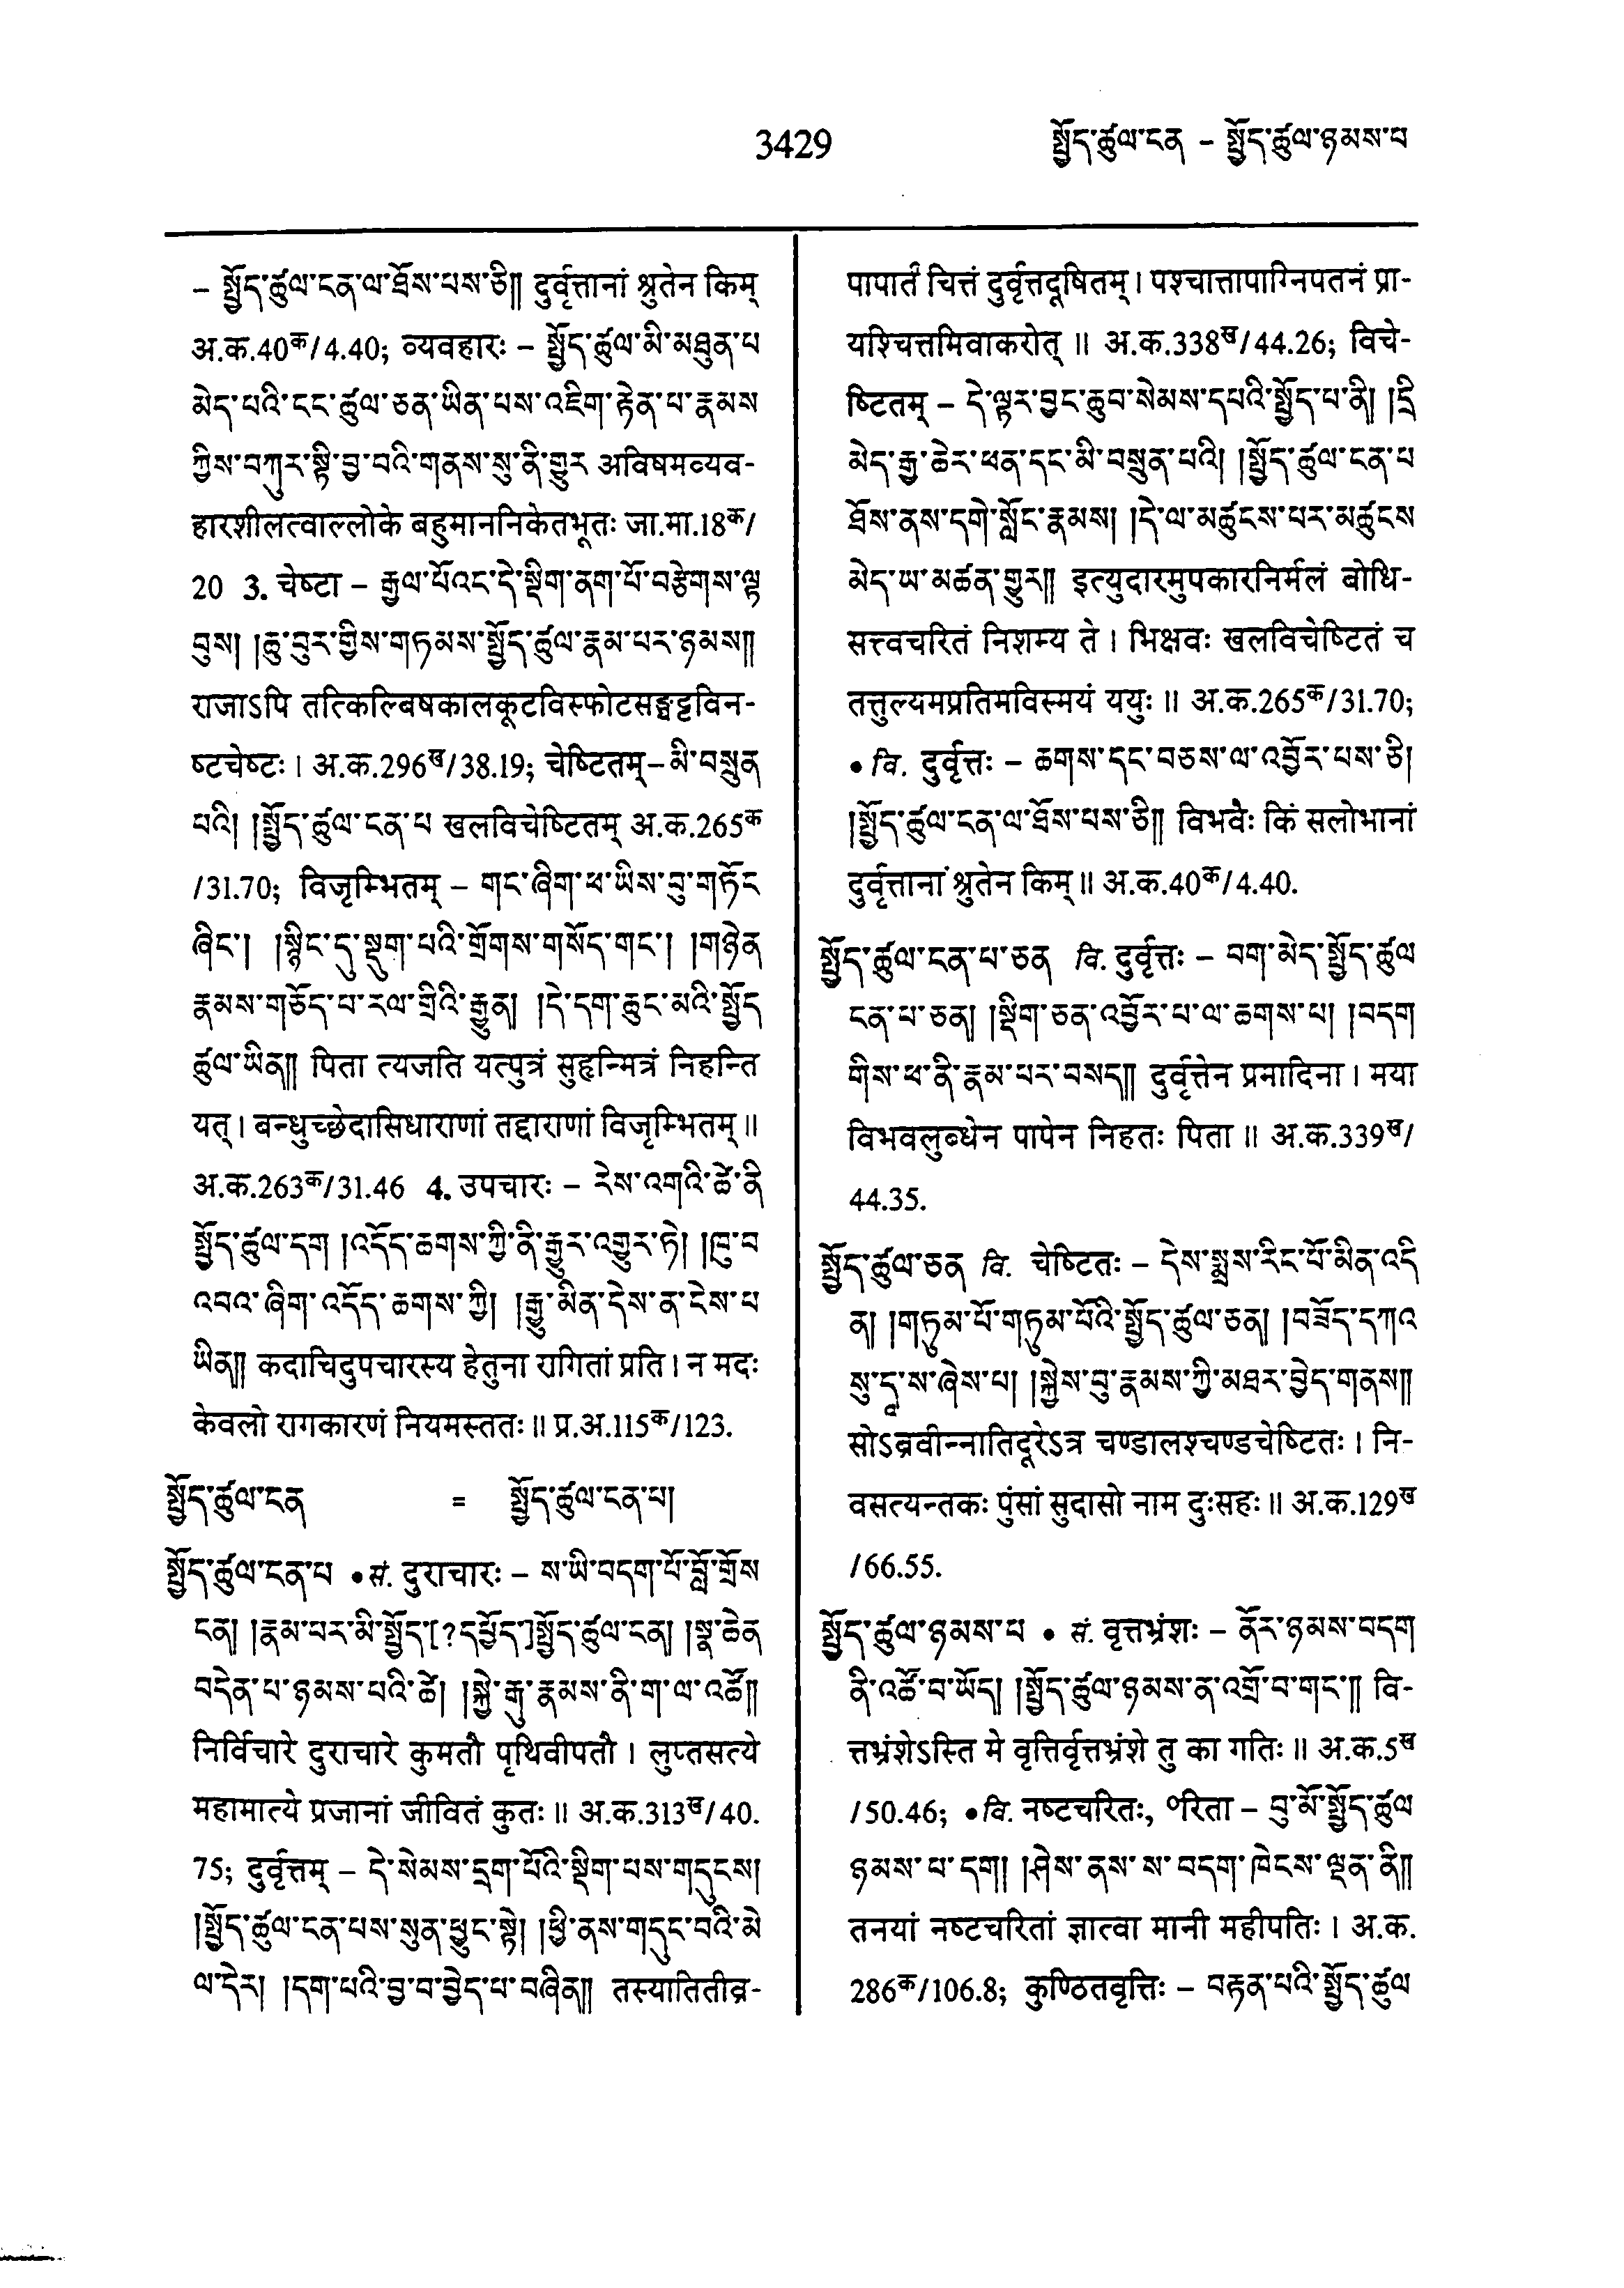 3429
སྤྱོད་ཚུལ་ངན – སྤྱོད་ཚུལ་ཉམས་པ
– སྤྱོད་ཚུལ་ངན་ལ་ཐོས་པས་ཅི།། दुर्वृत्तानां श्रुतेन किम्
अ.क.40क/4.40; व्यवहारः – སྤྱོད་ཚུལ་མི་མཐུན་པ
མེད་པའི་ངང་ཚུལ་ཅན་ཡིན་པས་འཇིག་རྟེན་པ་རྣམས
ཀྱིས་བཀུར་སྟི་བྱ་བའི་གནས་སུ་ནི་གྱུར अविषमव्यव-
हारशीलत्वाल्लोके बहुमाननिकेतभूतः जा.मा.18क/
20 3. चेष्टा – རྒྱལ་པོའང་དེ་སྡིག་ནག་པོ་བརྩེགས་ལྟ
བུས། །ཆུ་བུར་གྱིས་གཏམས་སྤྱོད་ཚུལ་རྣམ་པར་ཉམས།།
राजाऽपि तत्किल्बिषकालकूटविस्फोटसङ्घट्टविन-
ष्टचेष्टः । अ.क.296ख/38.19; चेष्टितम् – མི་བསྲུན
པའི། །སྤྱོད་ཚུལ་ངན་པ खलविचेष्टितम् अ.क.265क
/31.70; विजृम्भितम् – གང་ཞིག་ཕ་ཡིས་བུ་གཏོང
ཞིང་། །སྙིང་དུ་སྡུག་པའི་གྲོགས་གསོད་གང་། །གཉེན
རྣམས་གཅོད་པ་རལ་གྲིའི་རྒྱུན། །དེ་དག་ཆུང་མའི་སྤྱོད
ཚུལ་ཡིན།། पिता त्यजति यत्पुत्रं सुहृन्मित्रं निहन्ति
यत् । बन्धुच्छेदासिधाराणां तद्दाराणां विजृम्भितम् ॥
अ.क.263क/31.46 4. उपचारः – རེས་འགའི་ཚེ་ནི
སྤྱོད་ཚུལ་དག །འདོད་ཆགས་ཀྱི་ནི་རྒྱུར་འགྱུར་ཏེ། །ཁུ་བ
འབའ་ཞིག་འདོད་ཆགས་ཀྱི། །རྒྱུ་མིན་དེས་ན་ངེས་པ
ཡིན།། कदाचिदुपचारस्य हेतुना रागितां प्रति । न मदः
केवलो रागकारणं नियमस्ततः ॥ प्र.अ.115क/123.
སྤྱོད་ཚུལ་ངན = སྤྱོད་ཚུལ་ངན་པ།
སྤྱོད་ཚུལ་ངན་པ • सं. दुराचारः – ས་ཡི་བདག་པོ་བློ་གྲོས
ངན། །རྣམ་པར་མི་སྤྱོད་[?དཔྱོད་]སྤྱོད་ཚུལ་ངན། །སྣ་ཆེན
བདེན་པ་ཉམས་པའི་ཚེ། །སྐྱེ་རྒུ་རྣམས་ནི་ག་ལ་འཚོ།།
निर्विचारे दुराचारे कुमतौ पृथिवीपतौ । लुप्तसत्ये
महामात्ये प्रजानां जीवितं कुतः ॥ अ.क.313ख/40.
75; दुर्वृत्तम् – དེ་སེམས་དྲག་པོའི་སྡིག་པས་གདུངས།
།སྤྱོད་ཚུལ་ངན་པས་སུན་ཕྱུང་སྟེ། །ཕྱི་ནས་གདུང་བའི་མེ
ལ་དེར། །དག་པའི་བྱ་བ་བྱེད་པ་བཞིན།། तस्यातितीव्र-
पापार्तं चित्तं दुर्वृत्तदूषितम् । पश्चात्तापाग्निपतनं प्रा-
यश्चित्तमिवाकरोत् ॥ अ.क.338ख/44.26; विचे-
ष्टितम् – དེ་ལྟར་བྱང་ཆུབ་སེམས་དཔའི་སྤྱོད་པ་ནི། །དྲི
མེད་རྒྱ་ཆེར་ཕན་དང་མི་བསྲུན་པའི། །སྤྱོད་ཚུལ་ངན་པ
ཐོས་ནས་དགེ་སློང་རྣམས། །དེ་ལ་མཚུངས་པར་མཚུངས
མེད་ཡ་མཚན་གྱུར།། इत्युदारमुपकारनिर्मलं बोधि-
सत्त्वचरितं निशम्य ते । भिक्षवः खलविचेष्टितं च
तत्तुल्यमप्रतिमविस्मयं ययुः ॥ अ.क.265क/31.70;
• वि. दुर्वृत्तः – ཆགས་དང་བཅས་ལ་འབྱོར་པས་ཅི།
།སྤྱོད་ཚུལ་ངན་ལ་ཐོས་པས་ཅི།། विभवैः किं सलोभानां
दुर्वृत्तानां श्रुतेन किम् ॥ अ.क.40क/4.40.
སྤྱོད་ཚུལ་ངན་པ་ཅན वि. दुर्वृत्तः – བག་མེད་སྤྱོད་ཚུལ
ངན་པ་ཅན། །སྡིག་ཅན་འབྱོར་པ་ལ་ཆགས་པ། །བདག
གིས་ཕ་ནི་རྣམ་པར་བསད།། दुर्वृत्तेन प्रमादिना । मया
विभवलुब्धेन पापेन निहतः पिता ॥ अ.क.339ख/
44.35.
སྤྱོད་ཚུལ་ཅན वि. चेष्टितः – དེས་སྨྲས་རིང་པོ་མིན་འདི
ན། །གཏུམ་པོ་གཏུམ་པོའི་སྤྱོད་ཚུལ་ཅན། །བཟོད་དཀའ
སུ་དཱ་ས་ཞེས་པ། །སྐྱེས་བུ་རྣམས་ཀྱི་མཐར་བྱེད་གནས།།
सोऽब्रवीन्नातिदूरेऽत्र चण्डालश्चण्डचेष्टितः । नि-
वसत्यन्तकः पुंसां सुदासो नाम दुःसहः ॥ अ.क.129ख
/66.55.
སྤྱོད་ཚུལ་ཉམས་པ • सं. वृत्तभ्रंशः – ནོར་ཉམས་བདག
ནི་འཚོ་བ་ཡོད། །སྤྱོད་ཚུལ་ཉམས་ན་འགྲོ་བ་གང་།། वि-
त्तभ्रंशेऽस्ति मे वृत्तिर्वृत्तभ्रंशे तु का गतिः ॥ अ.क.5ख
/50.46; • वि. नष्टचरितः, ०रिता – བུ་མོ་སྤྱོད་ཚུལ
ཉམས་པ་དག། །ཤེས་ནས་ས་བདག་ཁེངས་ལྡན་ནི།།
तनयां नष्टचरितां ज्ञात्वा मानी महीपतिः । अ.क.
286क/106.8; कुण्ठितवृत्तिः – བརྟན་པའི་སྤྱོད་ཚུལ